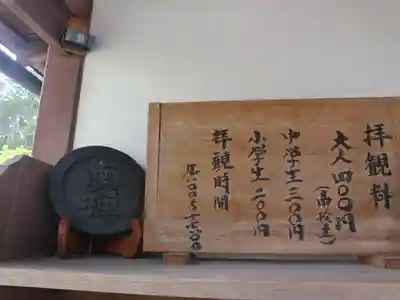 拝観料
大人 四〇〇円
(高校生)
中学生 三〇〇円
小学生 二〇〇円
拝観時間